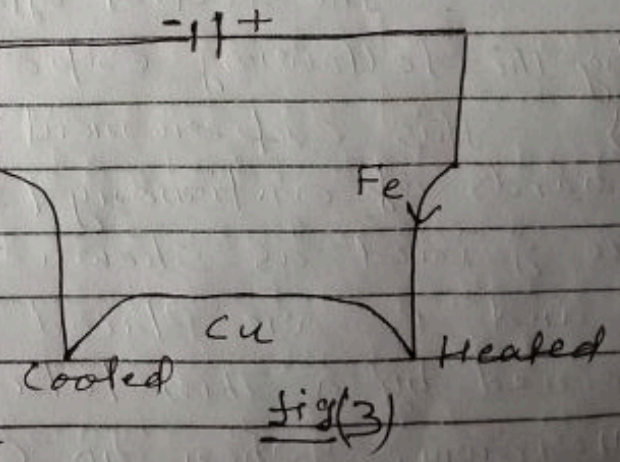 - +
Fe
Cu
Cooled Heated
fig(3)